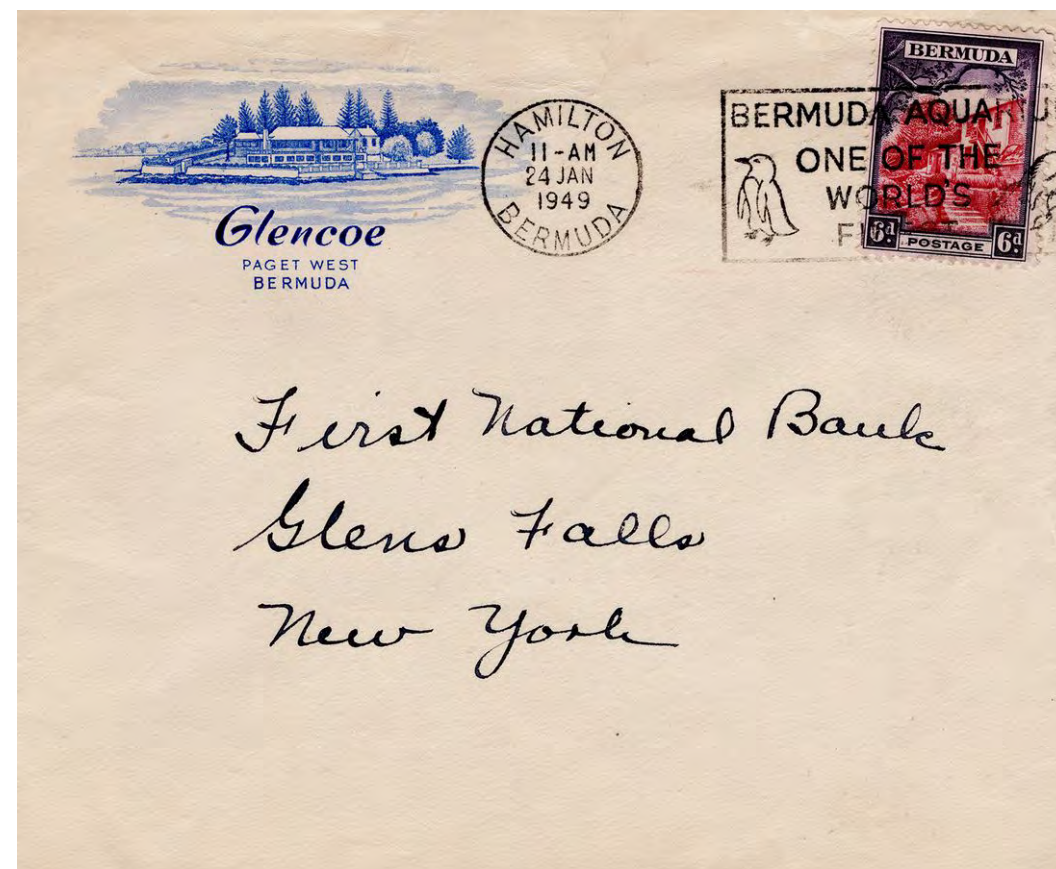 Glencoe
PAGET WEST
BERMUDA
HAMILTON
11-AM
24 JAN
1949
BERMUDA
BERMUDA AQUA
ONE OF THE
WORLD'S
BERMUDA
6d. POSTAGE 6d.
First National Bank
Glens Falls
New York